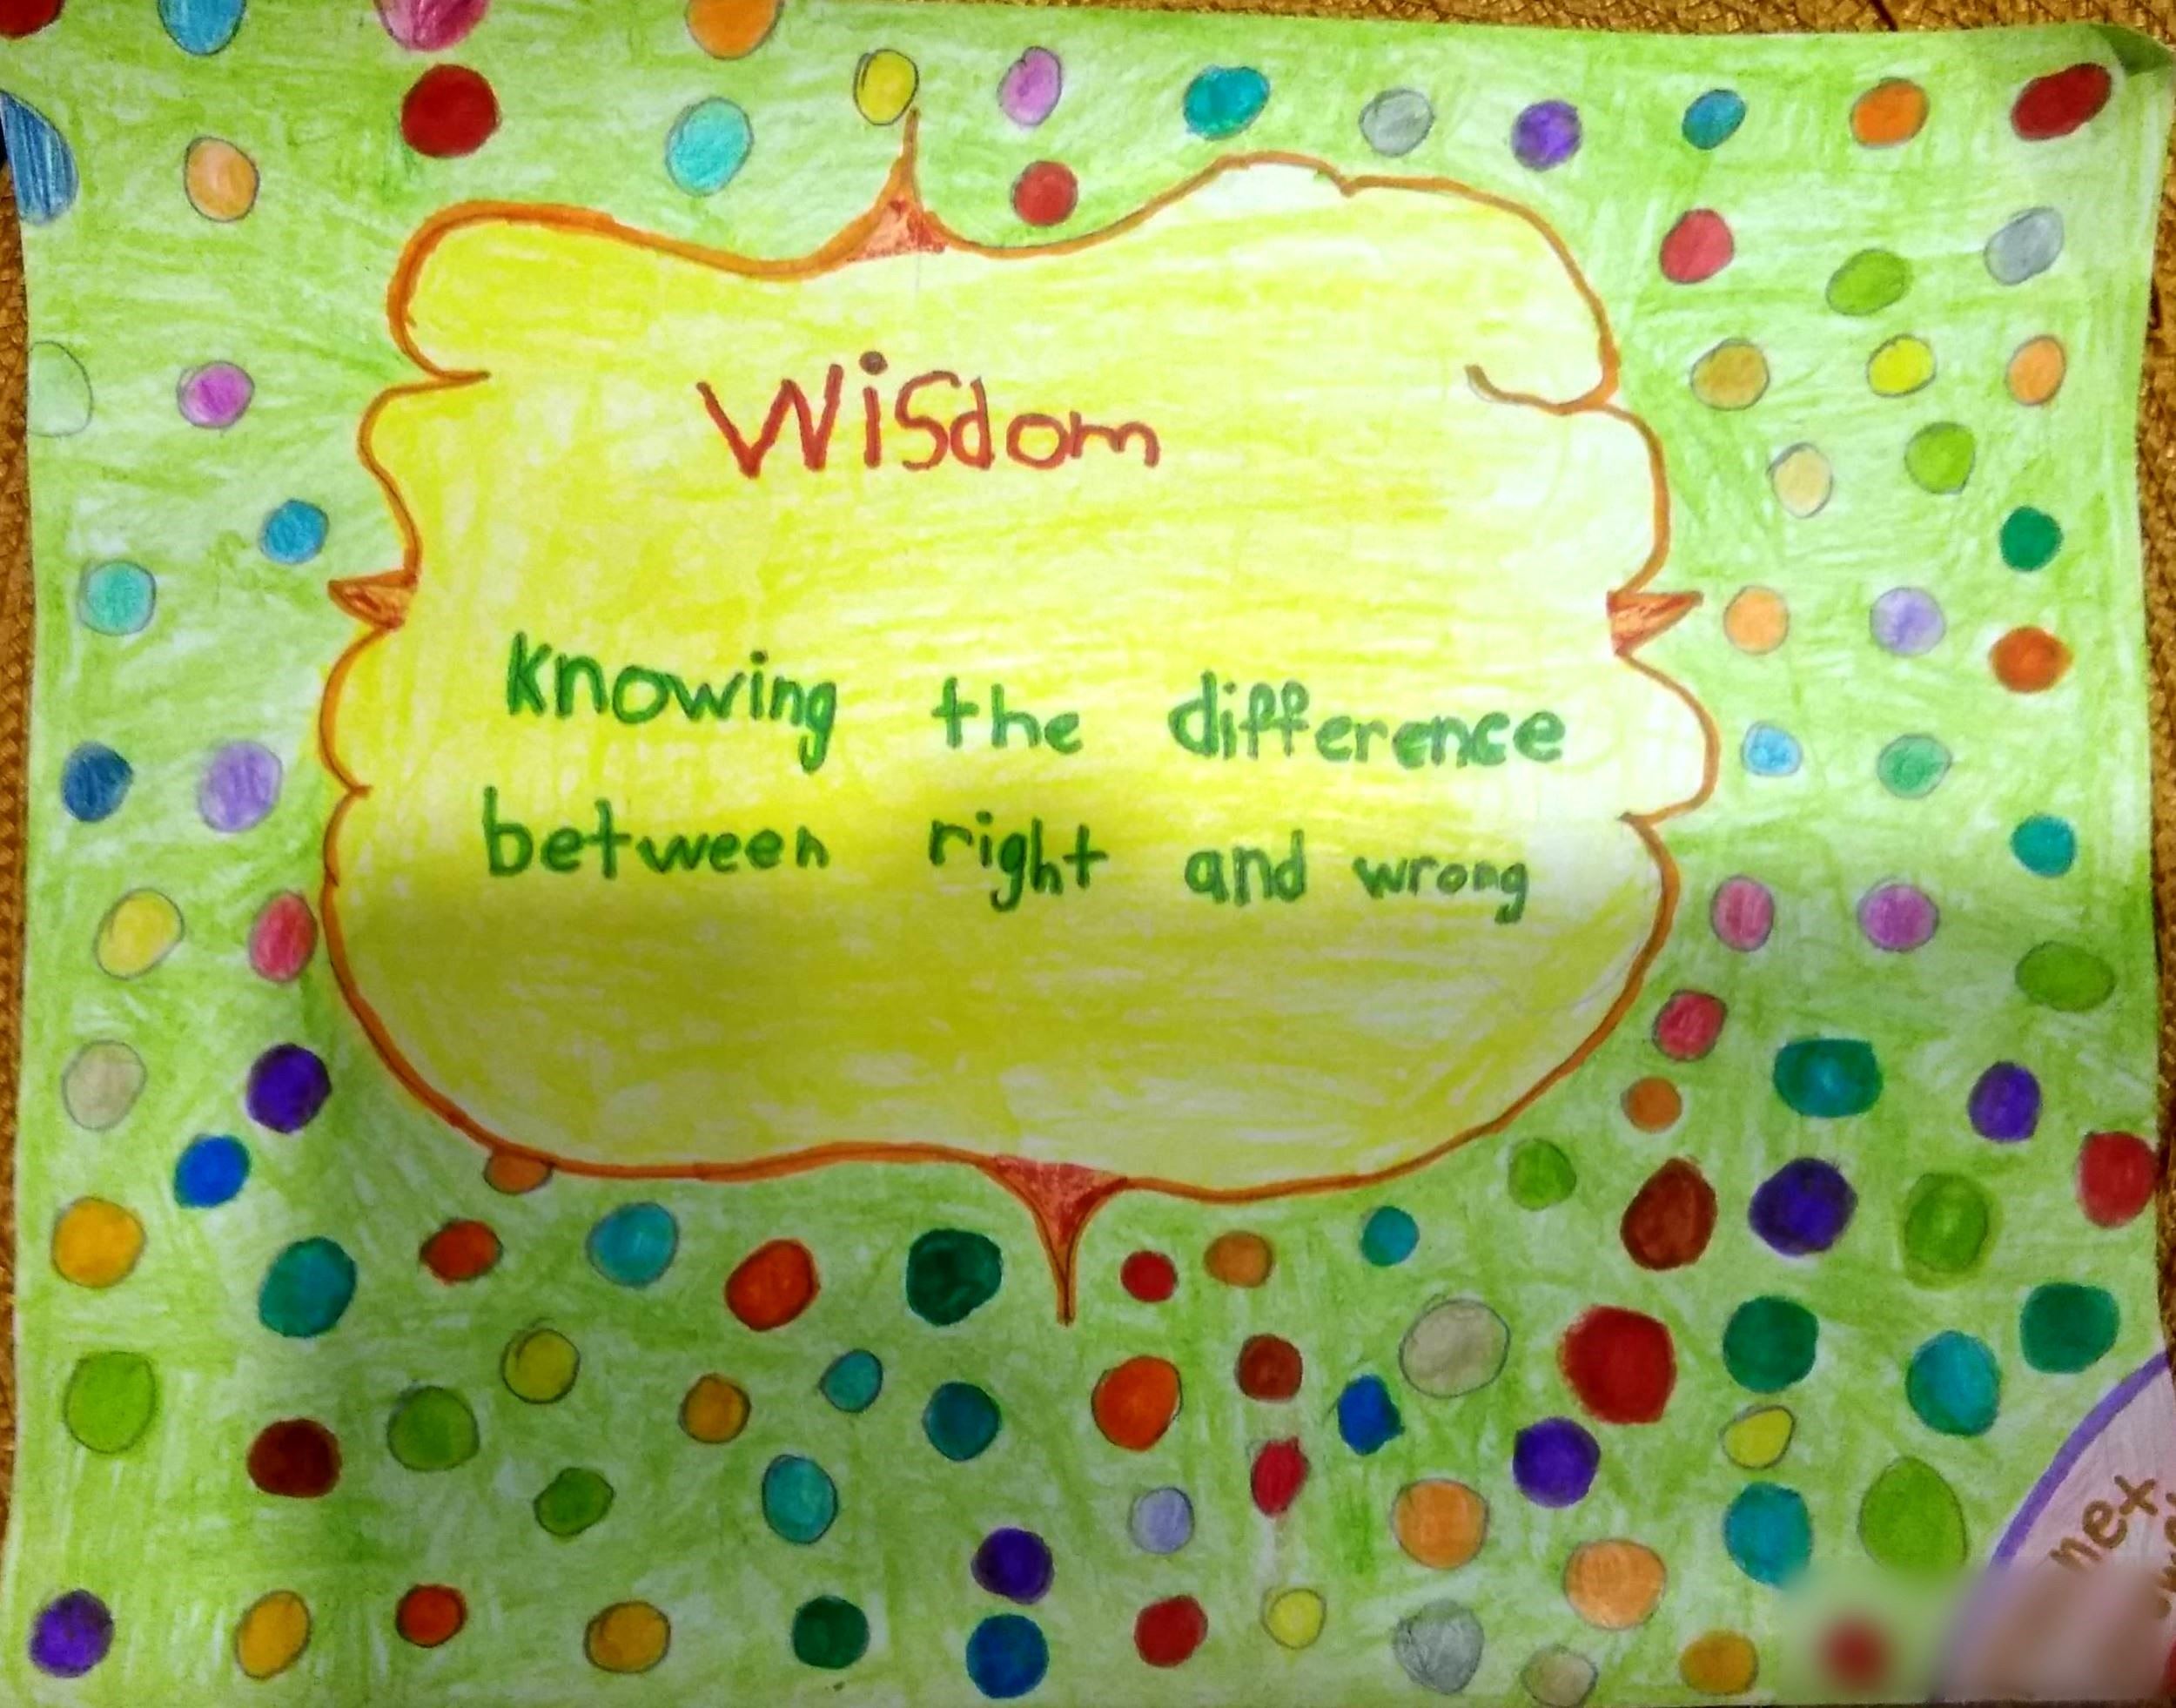 Wisdom
Knowing the difference
between right and wrong
next